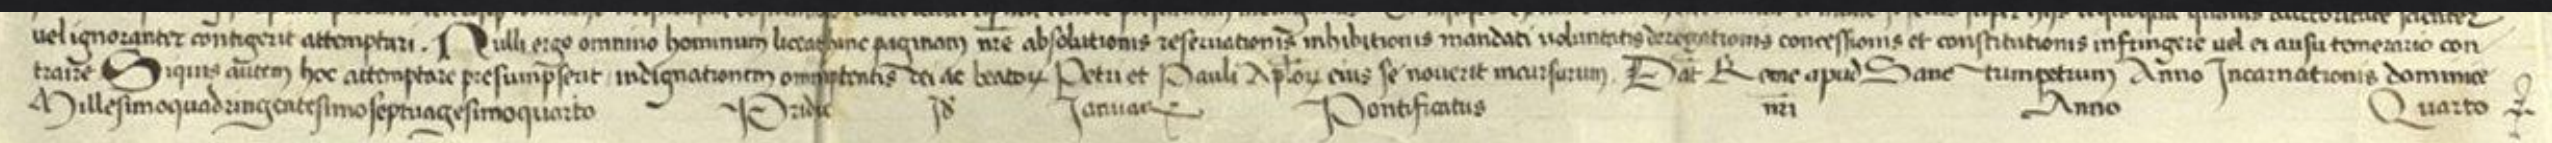 vel ignoranter contigerit attemptari. Nulli ergo omnino hominum liceat hanc paginam nr̄e absolutionis reservationis inhibitionis mandati voluntatis derogationis concessionis et constitutionis infringere vel ei ausu temerario con
traire Siquis autem hoc attemptare presumpserit indignationem omnipotentis dei ac beatoꝝ Petri et Pauli Apl̄oꝝ eius se noverit incursurum. Dat̄ Rome apud Sanc tumpetrum Anno Incarnationis dominice
Millesimoquadringentesimoseptuagesimoquarto Pridie Id̄ Januar Pontificatus nr̄i Anno Quarto